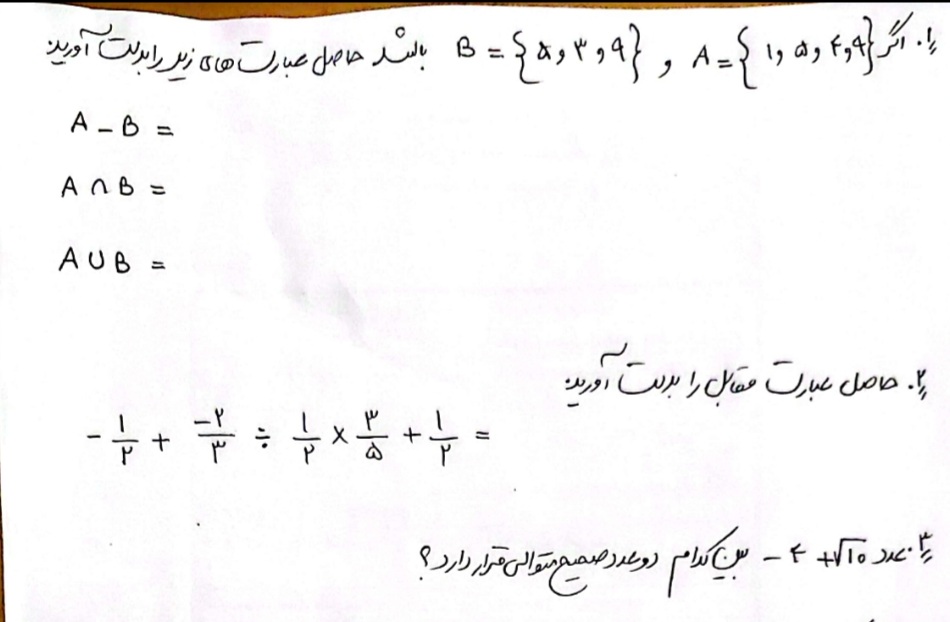 ۱. اگر A = {۱, ۵, ۴, ۹} و B = {۵, ۳, ۹} باشد حاصل عبارت های زیر را بدست آورید
A - B =
A ∩ B =
A ∪ B =
۲. حاصل عبارت مقابل را بدست آورید
- ۱/۲ + -۲/۳ ÷ ۱/۲ × ۳/۵ + ۱/۲ =
۳. عدد -۴+√۱۰ بین کدام دو عدد صحیح متوالی قرار دارد؟